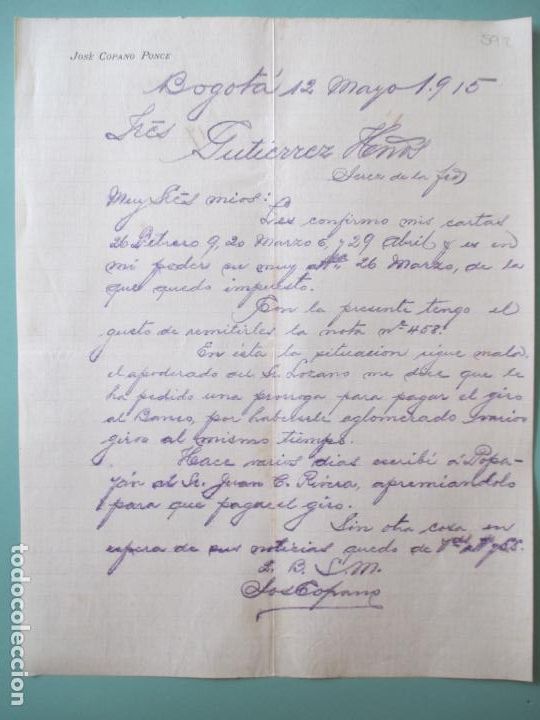 592
José Copano Ponce
Bogotá 12 Mayo 1.915
Srēs
Gutierrez Hños
Jerez de la fra
Muy Srēs mios:
Les confirmo mis cartas
26 Febrero 9, 20 Marzo 6, y 29 Abril y es en
mi poder su muy atta. 26 Marzo, de la
que quedo impuesto.
Con la presente tengo el
gusto de remitirles la nota nº 458.
En ésta la situacion sigue mala,
el apoderado del Sr. Lozano me dice que le
ha pedido una prorroga para pagar el giro
al Banco, por habersele aglomerado varios
giros al mismo tiempo.
Hace varios dias escribí á Popa-
yán al Sr. Juan C. Rivera, apremiandolo
para que pague el giro.
Sin otra cosa, en
espera de sus noticias quedo de Vdes atto y SS.
2. B. S. M.
José Copano
todocoleccion.net